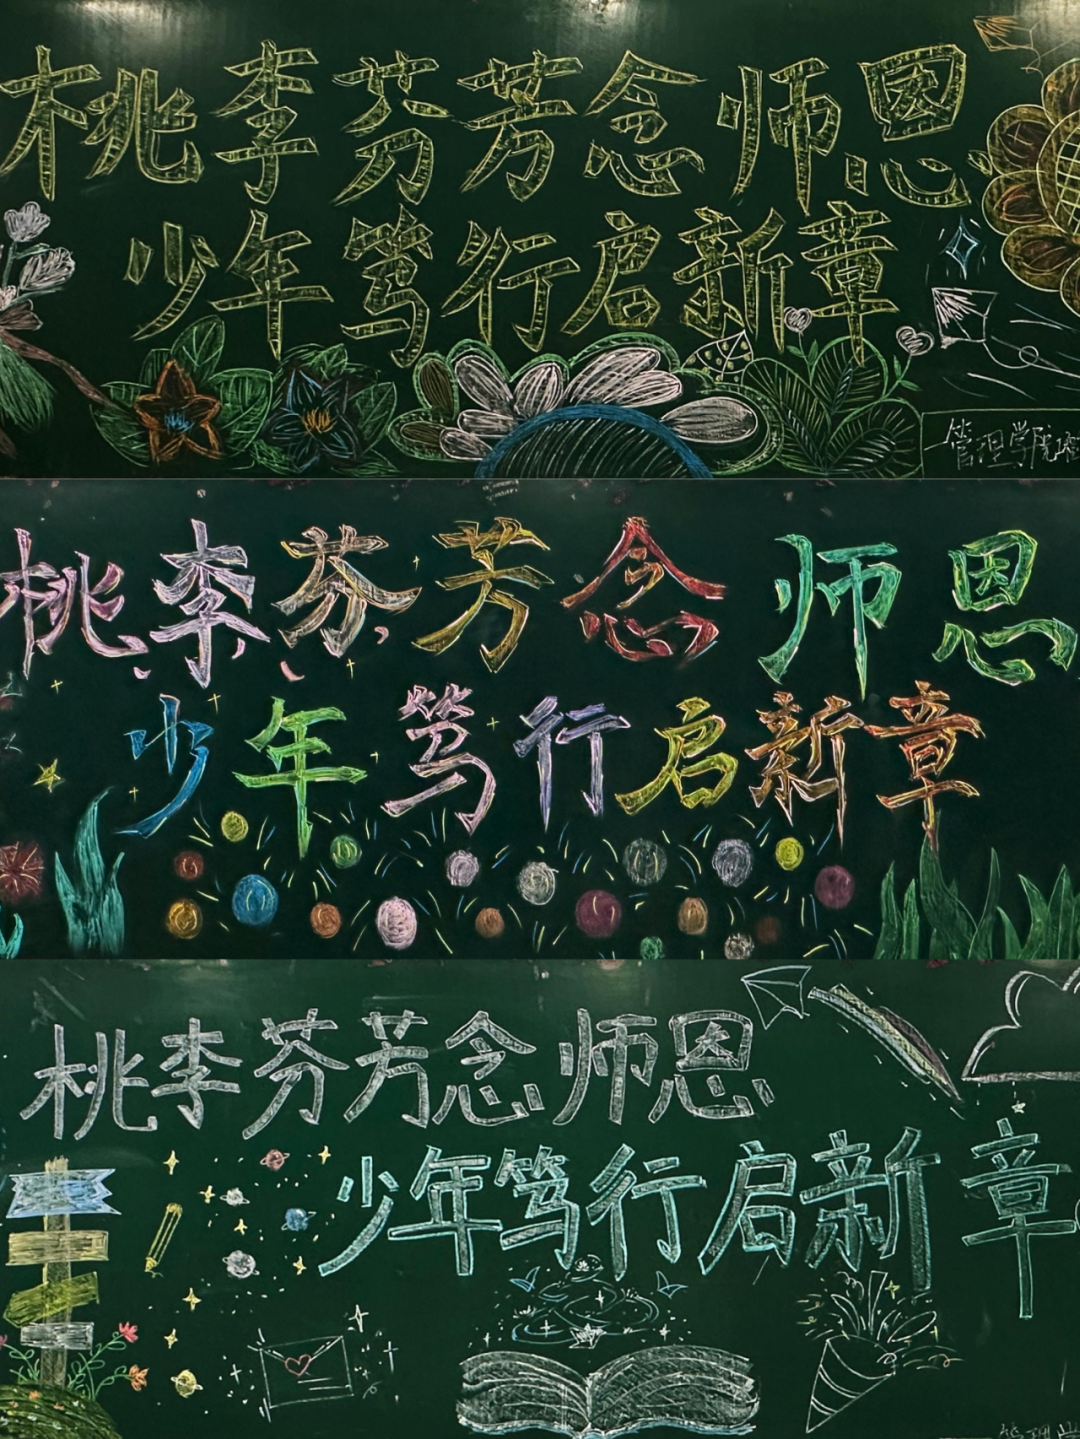 桃李芬芳念师恩
少年笃行启新章
管理学院
桃李芬芳念师恩
少年笃行启新章
桃李芬芳念师恩
少年笃行启新章